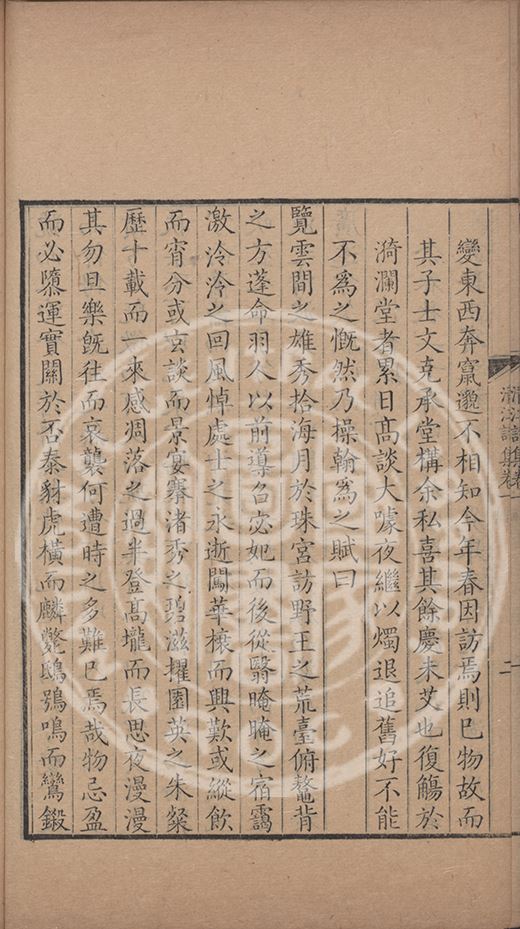 變東西奔竄邈不相知今年春因訪焉則已物故而
其子士文克承堂構余私喜其餘慶未艾也復觴於
漪瀾堂者累日高談大噱夜繼以燭退追舊好不能
不為之慨然乃操翰為之賦曰
覽雲間之雄秀拾海月於珠宮訪野王之荒臺俯鼇背
之方蓬命羽人以前導召宓妃而後從翳晻晻之宿靄
激泠泠之回風悼處士之永逝闖華榱而興歎或縱飲
而宵分或玄談而景宴搴渚秀之碧滋擢園英之朱粲
歷十載而一來感凋落之過半登高壠而長思夜漫漫
其勿旦樂旣往而哀襲何遭時之多難已焉哉物忌盈
而必隳運實關於否泰豺虎橫而麟斃鴟鴞鳴而鸞鎩
集卷一
二